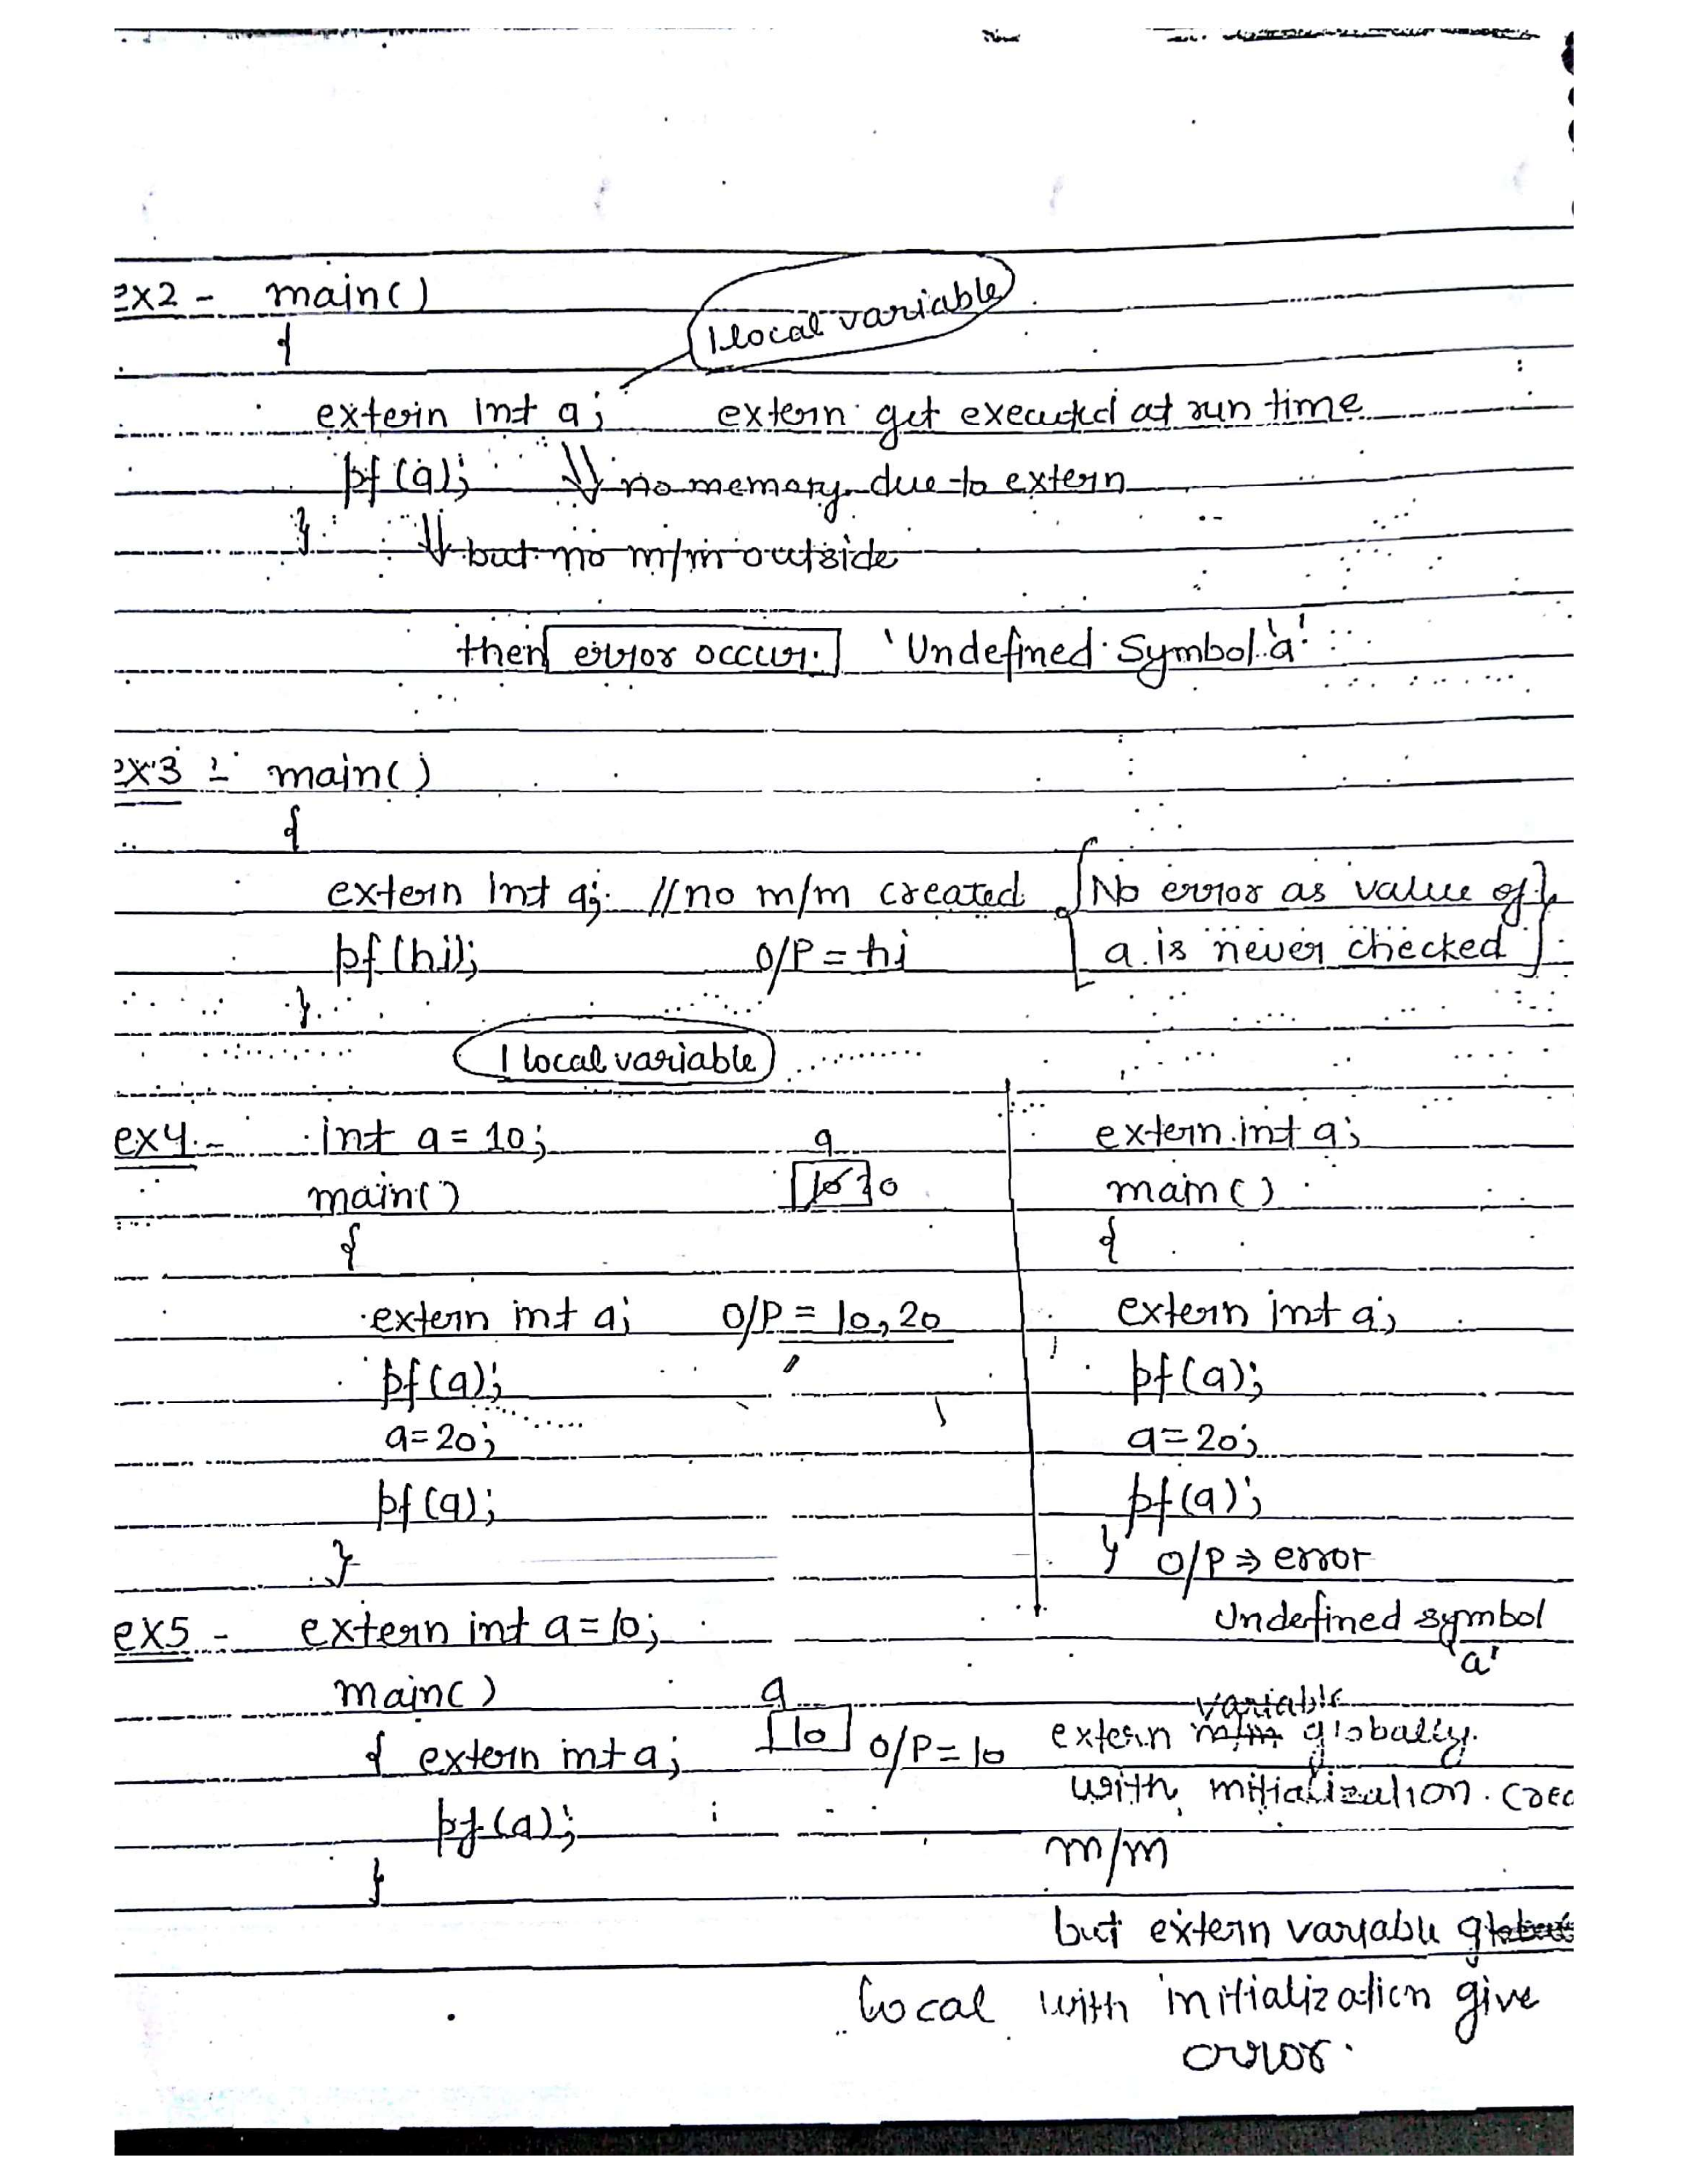 ex2 - main()
1 local variable
{
extern int a; extern get executed at run time
pf(a); ⇓ no memory due to extern
} ⇓ but no m/m outside
then error occur. 'Undefined Symbol 'a'
ex3 - main()
{
extern int a; // no m/m created [No error as value of
pf(hi); O/P = hi a is never checked]
}
1 local variable
ex4 - int a = 10;
main()
{
extern int a; O/P = 10, 20
pf(a);
a=20;
pf(a);
}
a
10 20
extern int a;
main()
{
extern int a;
pf(a);
a=20;
pf(a);
} O/P ⇒ error
Undefined symbol
'a'
ex5 - extern int a = 10;
main()
{ extern int a;
pf(a);
}
a
10 O/P = 10
variable
extern m/m globally
with initialization.
m/m
but extern variable
local with initialization give
error.